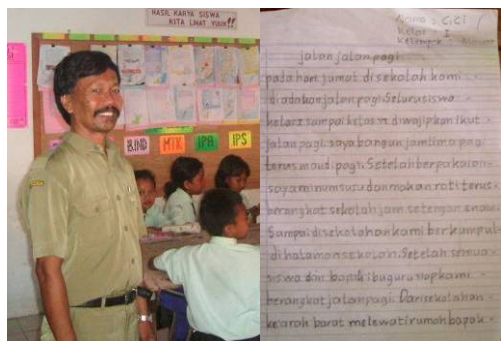 HASIL KARYA SISWA
KITA LIHAT YUUK!!
B.IND MTK IPA IPS
Nama : CiCi
Kelas : I
Kelompok :
jalan jalan pagi
pada hari jumat di sekolah kami
di adakan jalan pagi. Seluru siswa
kelas 1 sampai kelas VI diwajipkan ikut
jalan pagi. saya bangun jam lima pagi
terus mandi pagi. Setelah berpakaian
saya minum susu dan makan roti terus
berangkat sekolah jam setengah enam.
Sampai disekolahan kami berkumpul
di halaman sekolah. Setelah semua
siswa dan bapak ibu guru siap kami
berangkat jalan pagi. Dari sekolahan
kearah barat melewati rumah bapak